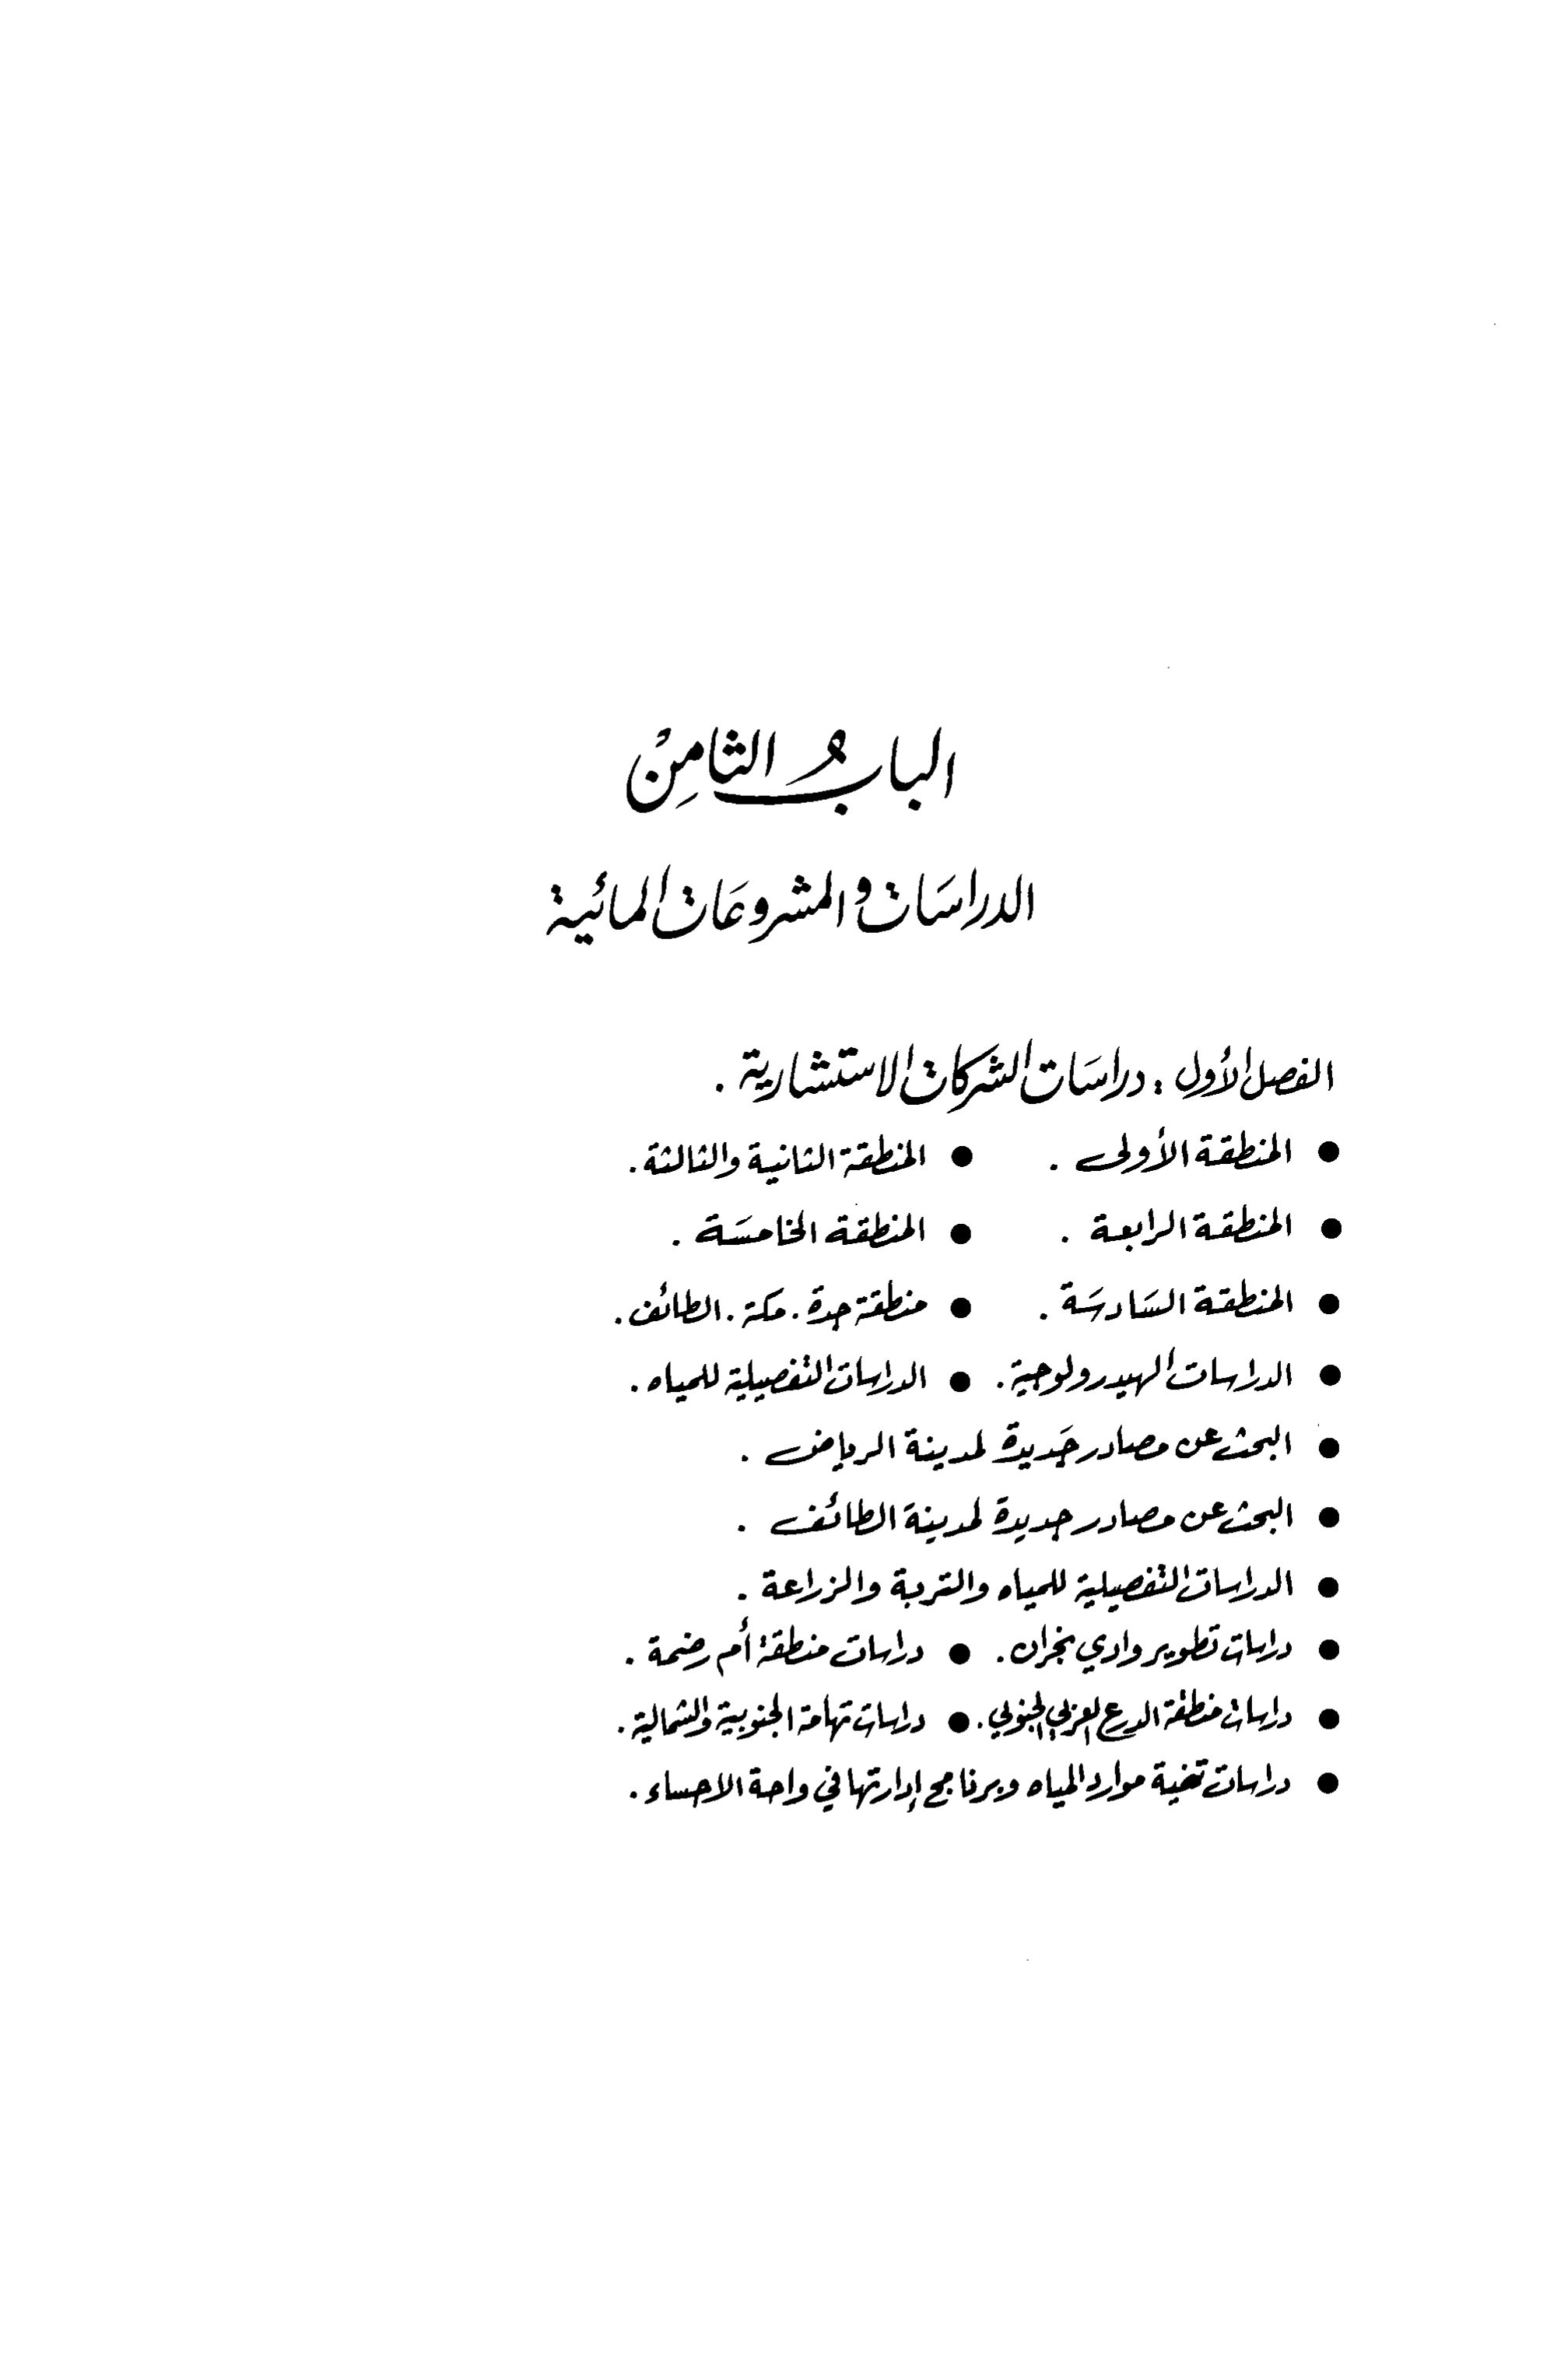 الباب الثامن
الدراسات والمشروعات المائية
الفصل الأول : دراسات الشركات الاستشارية .
● المنطقة الأولى . ● المنطقة الثانية والثالثة .
● المنطقة الرابعة . ● المنطقة الخامسة .
● المنطقة السادسة . ● منطقة جدة . مكة . الطائف .
● الدراسات الهيدرولوجية . ● الدراسات التفصيلية للمياه .
● البحث عن مصادر جديدة لمدينة الرياض .
● البحث عن مصادر جديدة لمدينة الطائف .
● الدراسات التفصيلية للمياه والتربة والزراعة .
● دراسات تطوير وادي نجران . ● دراسات منطقة أم رضمة .
● دراسات منطقة الدرع العربي الجنوبي . ● دراسات تهامة الجنوبية والشمالية .
● دراسات تنمية موارد المياه وبرنامج إدارتها في واحة الاحساء .